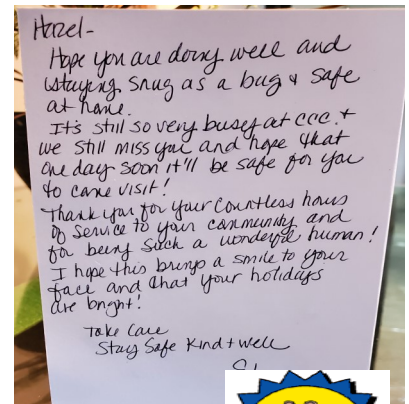 Hazel-
Hope you are doing well and
staying snug as a bug & safe
at home.
It's still so very busy at CCC &
we still miss you and hope that
one day soon it'll be safe for you
to come visit!
Thank you for your countless hours
of service to your community and
for being such a wonderful human!
I hope this brings a smile to your
face and that your holidays
are bright!
Take Care
Stay Safe Kind + Well